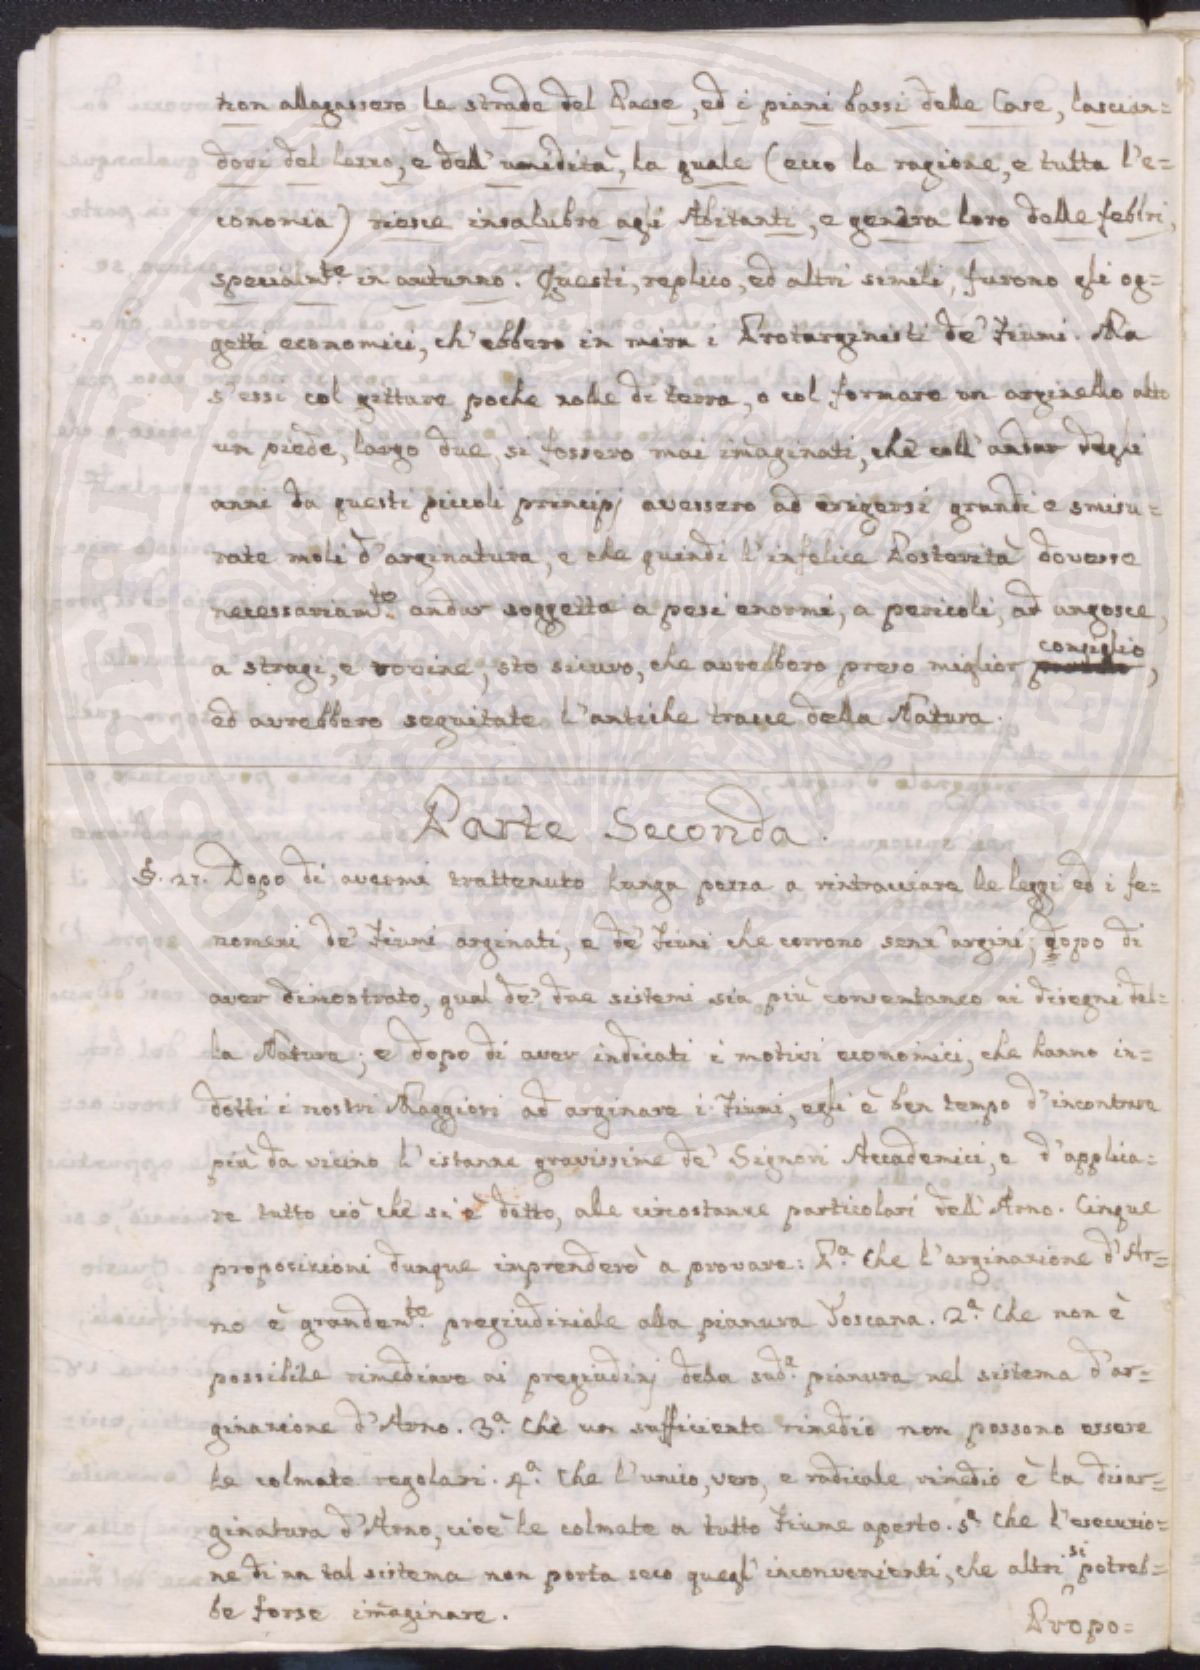 non allagassero le strade del Paese, ed i piani bassi delle Case, lascian=
dovi del lezzo, e dell' umidità, la quale (ecco la ragione, e tutta l'e=
conomia) riesce insalubre agli Abitanti, e genera loro delle febbri,
specialm.te in autunno. Questi, replico, ed altri simili, furono gli og=
getti economici, ch' ebbero in mira i Protarginisti de' Fiumi. Ma
s'essi col gittare poche zolle di terra, o col formare un arginello alto
un piede, largo due, si fossero mai imaginati, che coll' andar degli
anni da questi piccoli principj avessero ad erigersi grandi e smisu=
rate moli d'arginatura, e che quindi l'infelice Posterità dovesse
necessariam.te andar soggetta a pesi enormi, a pericoli, ad angosce,
a stragi, e rovine, sto sicuro, che avrebbero preso miglior consiglio,
ed avrebbero seguitate l'antiche tracce della Natura.
Parte Seconda.
§. 27. Dopo di avermi trattenuto lunga pezza a rintracciare le leggi ed i fe=
nomeni de' Fiumi arginati, e de' Fiumi che corrono senz' argini; dopo di
aver dimostrato, qual de' due sistemi sia più consentaneo ai disegni del=
la Natura; e dopo di aver indicati i motivi economici, che hanno in=
dotti i nostri Maggiori ad arginare i Fiumi, egli è ben tempo d'incontrare
più da vicino l'istanze gravissime de' Signori Accademici, e d'applica=
re tutto ciò che si è detto, alle circostanze particolari dell' Arno. Cinque
proposizioni dunque inprenderò a provare: P.a Che l'arginazione d'Ar=
no è grandem.te pregiudiziale alla pianura Toscana. 2.a Che non è
possibile rimediare ai pregiudizj della sud.a pianura nel sistema d'ar=
ginazione d'Arno. 3.a Che un sufficiente rimedio non possono essere
le colmate regolari. 4.a Che l'unico, vero, e radicale rimedio è la disar=
ginatura d'Arno, cioè le colmate a tutto Fiume aperto. 5.a Che l'esecuzio=
ne di un tal sistema non porta seco quegl' inconvenienti, che altri si potreb=
be forse imaginare.
Propo=